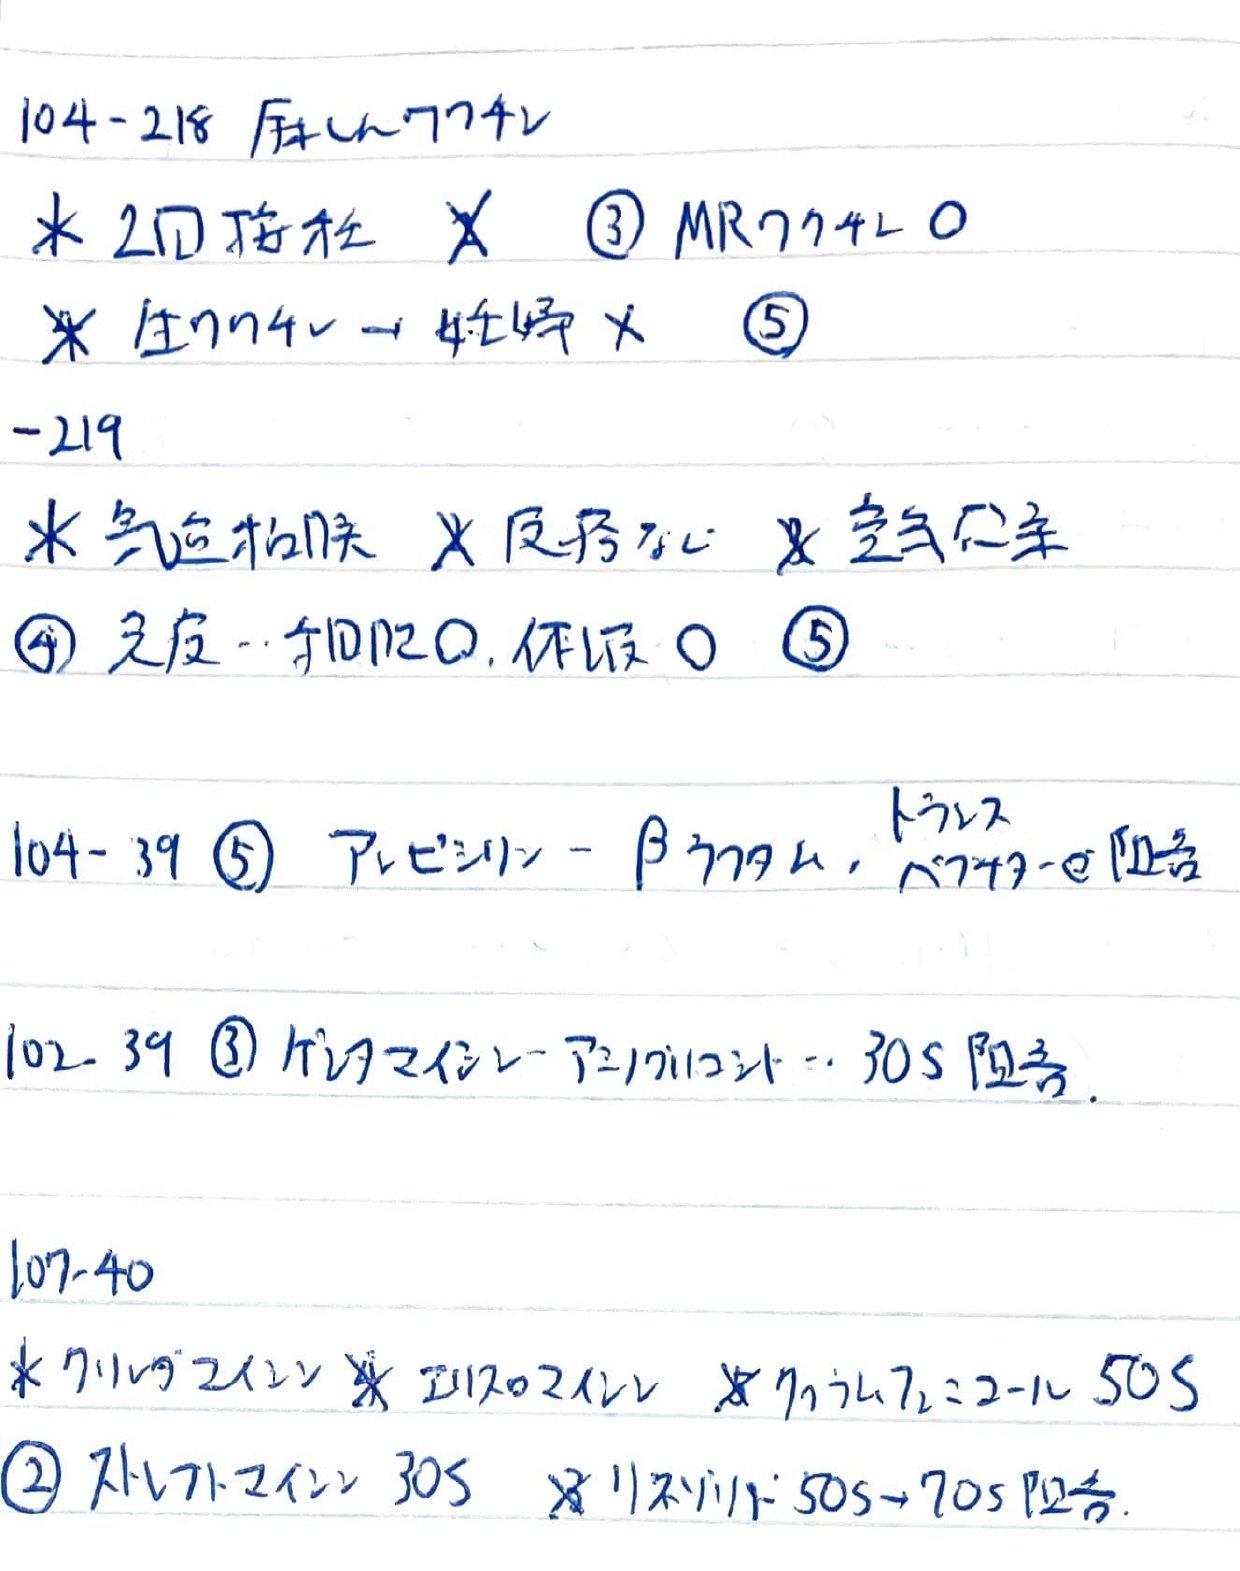 104-218 麻しんワクチン
* 2回接種 × ③ MRワクチン ○
* 生ワクチン → 妊婦 × ⑤
-219
* 気道粘膜 × 反応なし × 空気伝染
④ 免疫‥細胞○、体液○ ⑤
104-39 ⑤ アンピシリン - βラクタム, トランスペプチターゼ阻害
102-39 ③ ゲンタマイシン - アミノグリコシド‥30S阻害.
107-40
* クリンダマイシン * エリスロマイシン * クロラムフェニコール 50S
② ストレプトマイシン 30S * リネゾリド 50S→70S阻害.